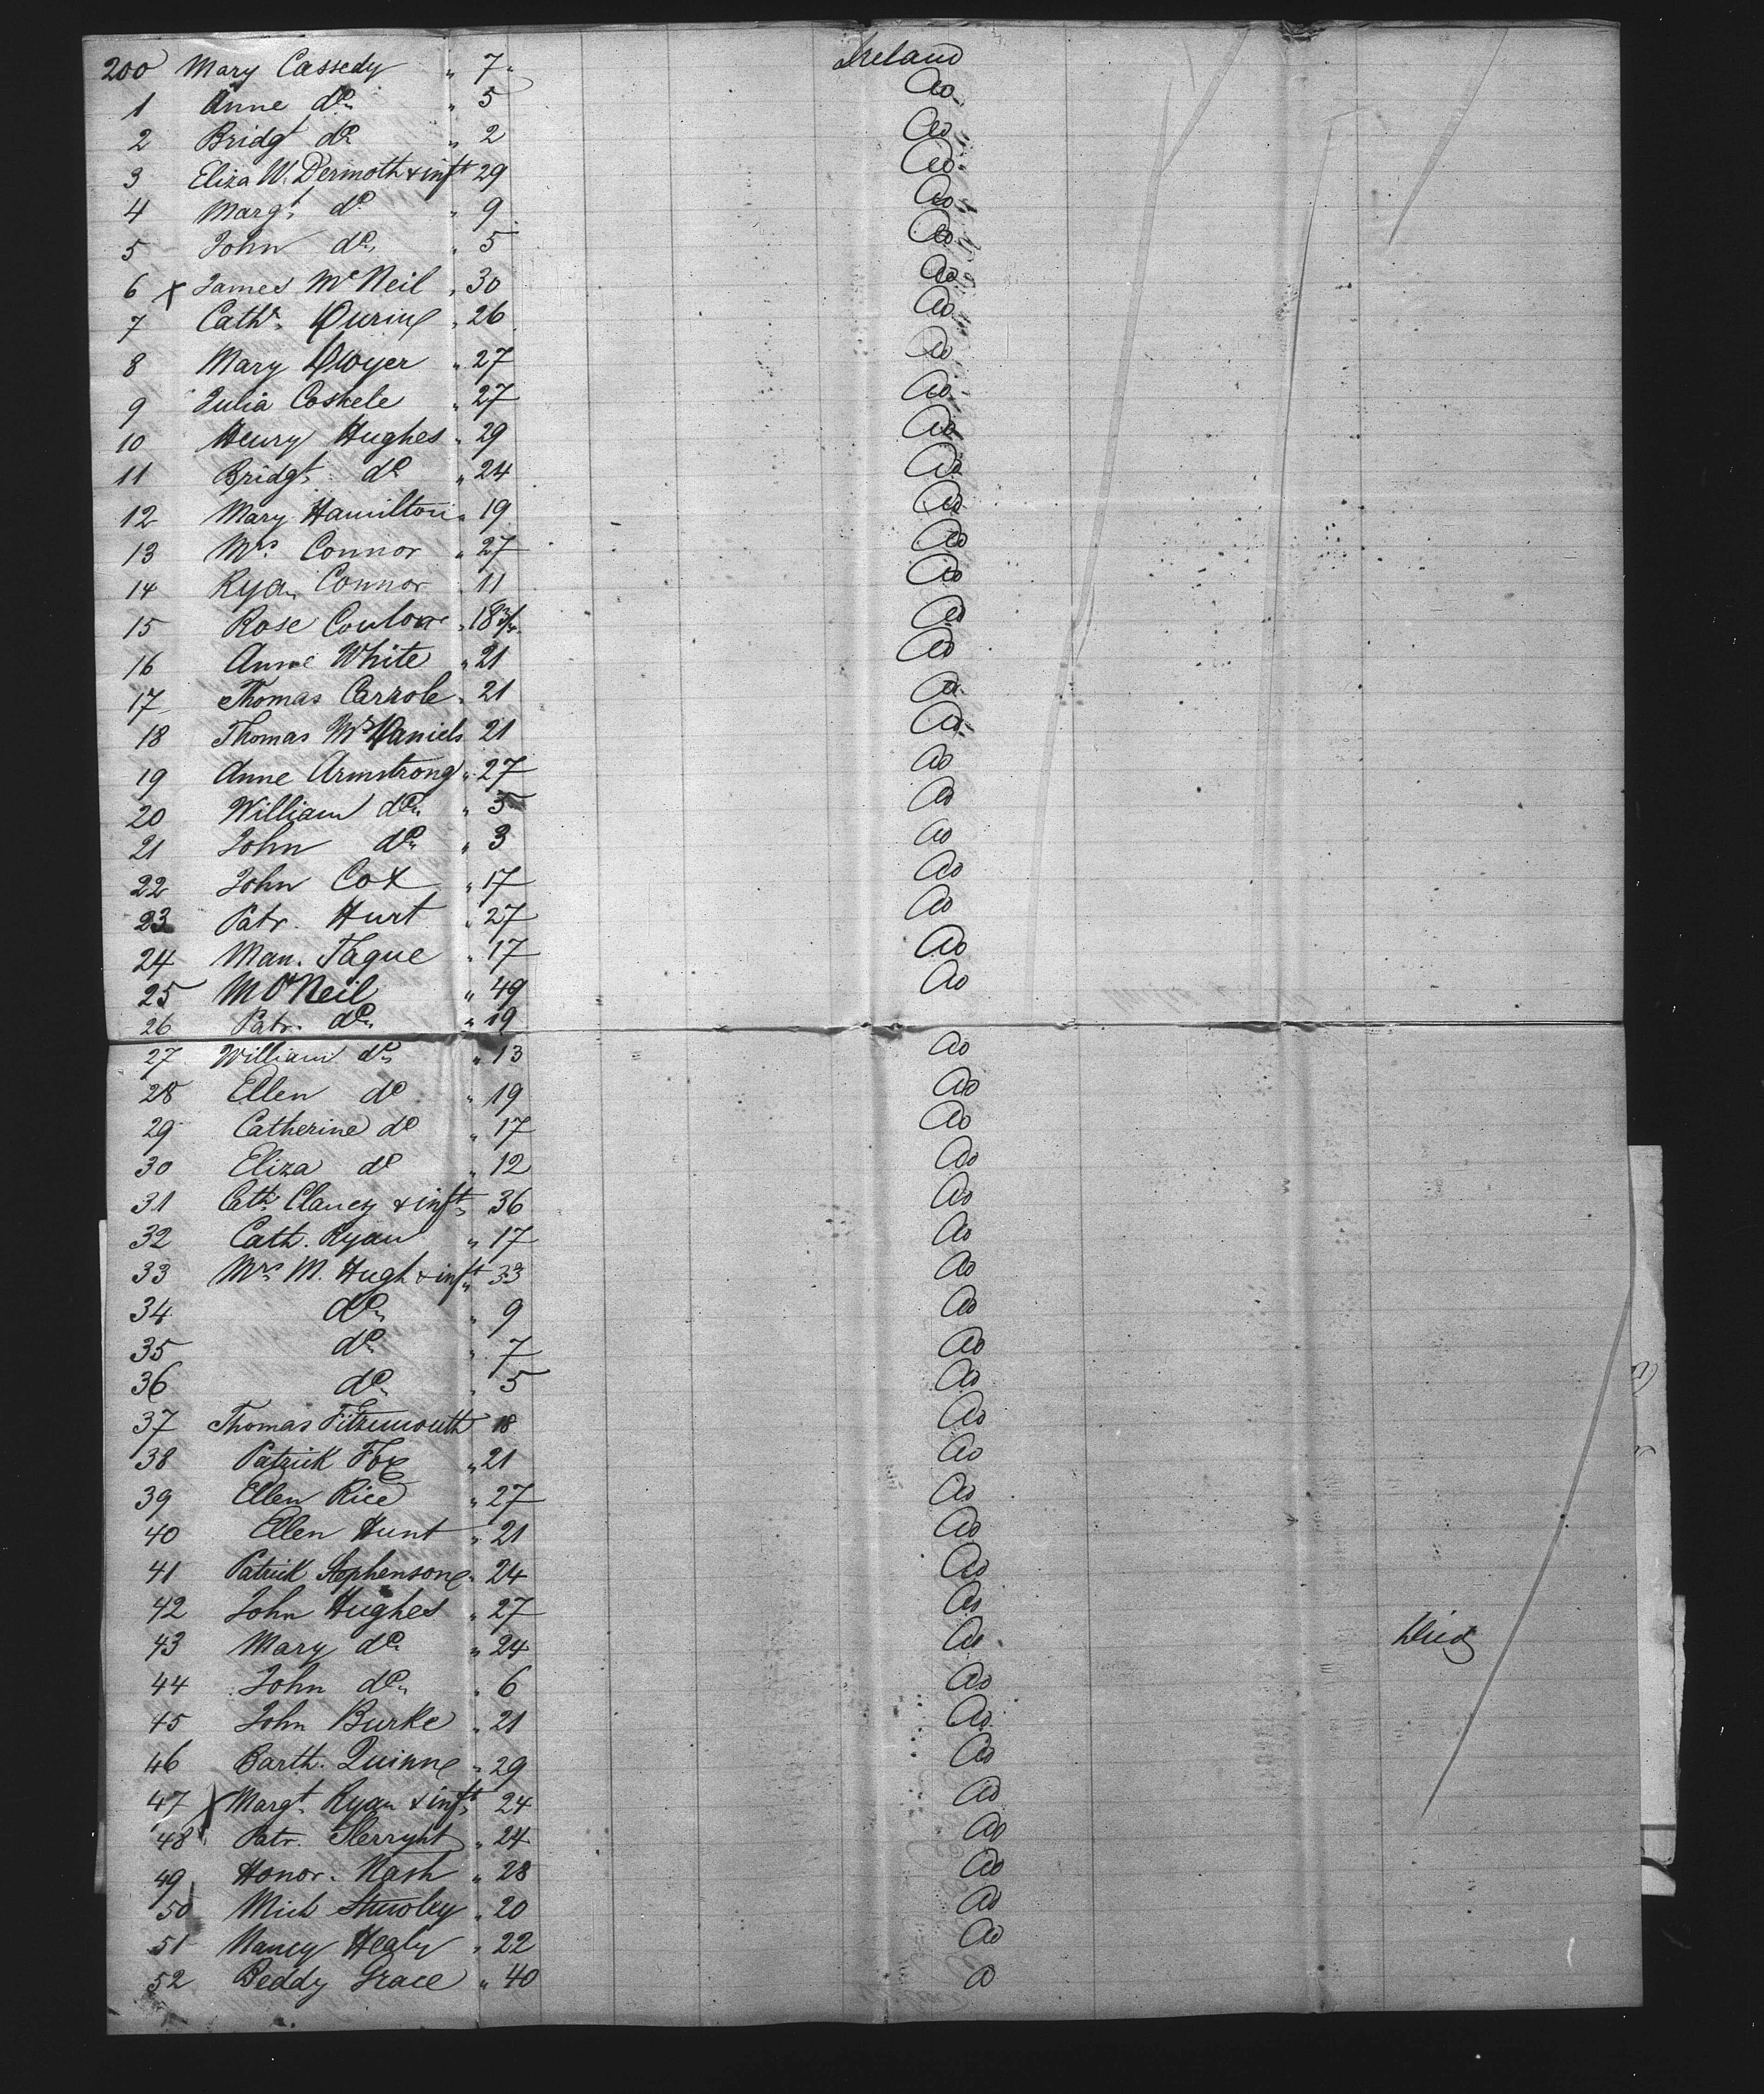 200 Mary Cassedy " 7 " Ireland
1 Anne do " 5 do
2 Bridgt do " 2 do
3 Eliza W. Dermoth & inft 29 do
4 Margt do " 9 do
5 John do " 5 do
6 x James McNeil " 30 do
7 Cath. " 26 do
8 Mary Dwyer " 27 do
9 Julia Coskele " 27 do
10 Henry Hughes " 29 do
11 Bridgt do " 24 do
12 Mary Hamilton " 19 do
13 Mrs Connor " 27 do
14 Ryan Connor " 11 do
15 Rose " 18 do
16 Anne White " 21 do
17 Thomas Carrole " 21 do
18 Thomas McDaniels 21 do
19 Anne Armstrong " 27 do
20 William do " 5 do
21 John do " 3 do
22 John Cox " 17 do
23 Patr. Hurt " 27 do
24 Man. Tague " 17 do
25 M O'Neil " 49 do
26 Patr. do " 19
27 William do " 13 do
28 Ellen do " 19 do
29 Catherine do " 17 do
30 Eliza do " 12 do
31 Cath Clancy & inft " 36 do
32 Cath. Ryan " 17 do
33 Mrs M. Hugh & inft " 33 do
34 do " 9 do
35 do " 7 do
36 do " 5 do
37 Thomas 18 do
38 Patrick Fox " 21 do
39 Ellen Rice " 27 do
40 Ellen Hunt " 21 do
41 Patrick Stephenson " 24 do
42 John Hughes " 27 do
43 Mary do " 24 do Died
44 John do " 6 do
45 John Burke " 21 do
46 Barth. Quinn " 29 do
47 x Margt. Ryan & inft 24 do
48 Patr. " 24 do
49 Honor. Nash " 28 do
50 Mich " 20 do
51 Nancy Healy " 22 do
52 Beddy Grace " 40 do